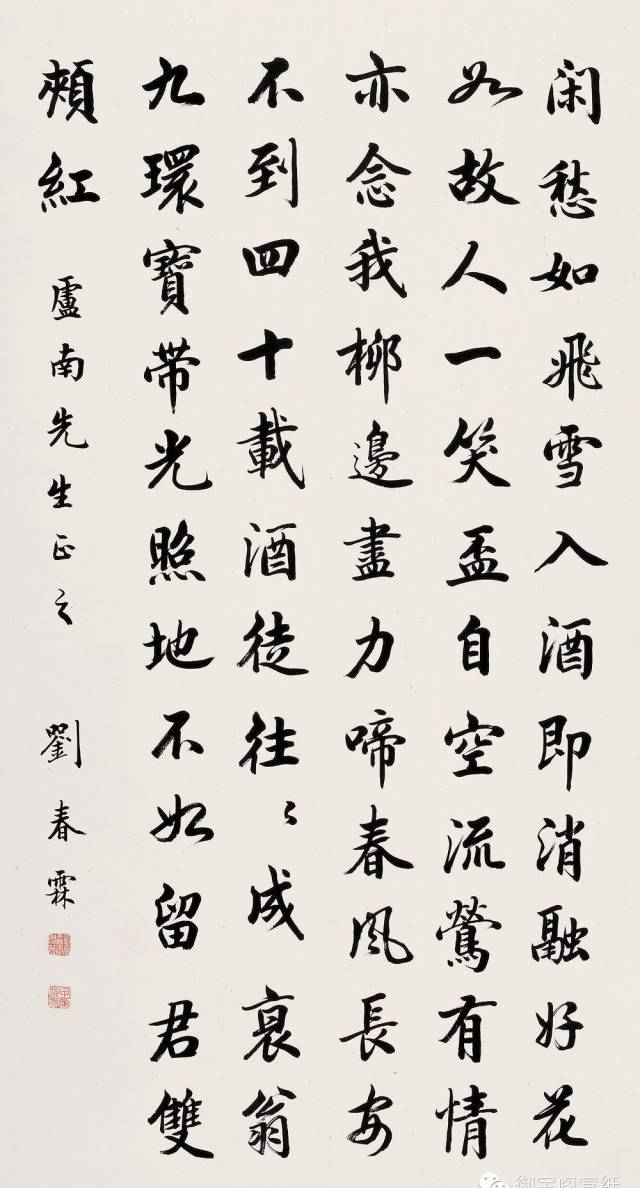 閑愁如飛雪入酒即消融好花
如故人一笑盃自空流鶯有情
亦念我柳邊盡力啼春風長安
不到四十載酒徒往〻成衰翁
九環寶帶光照地不如留君雙
頰紅 盧南先生正之 劉春霖
御宝阁宣纸